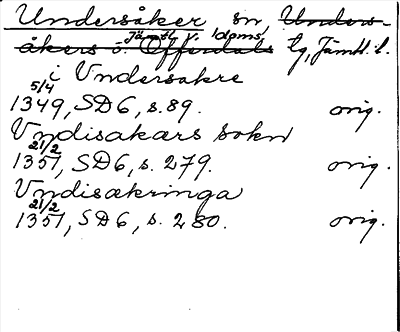 Undersåker sn Unders-
åkers o. Offerdals Jämtl. v. doms. tg, Jämtl. l.
i Undersakre
5/4 1349, SD6, s. 89. orig.
Vndisakærs sokn
21/2 1351, SD6, s. 279. orig.
Vndisækringa
21/2 1351, SD6, s. 280. orig.